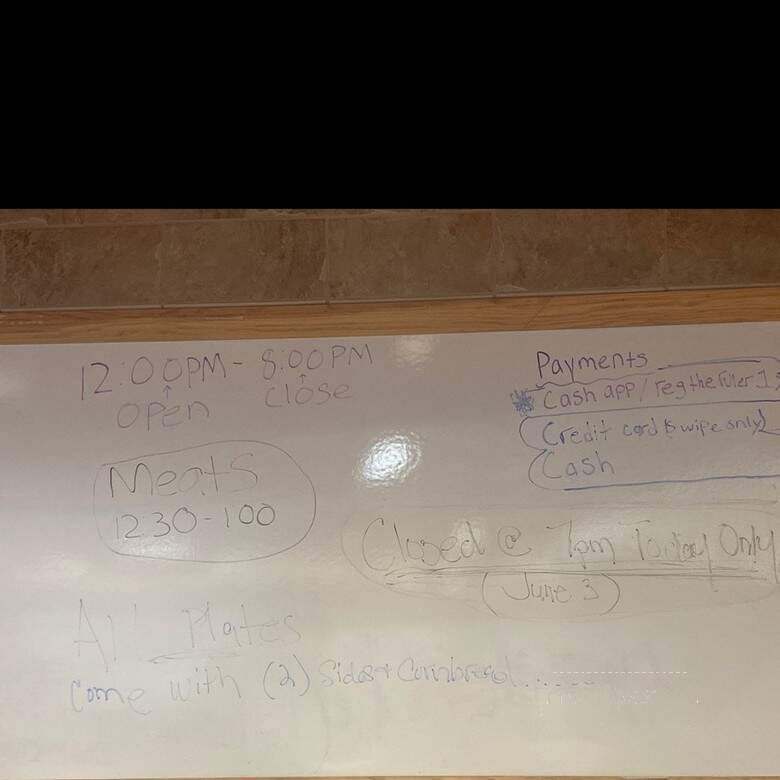 12:00PM - 8:00PM
open close
Payments
Cash app / regtheruler1
(Credit card swipe only)
Cash
Meats
12:30-1:00
Closed @ 7pm Today Only
(June 3)
All Plates
Come with (2) Sides + Cornbread......